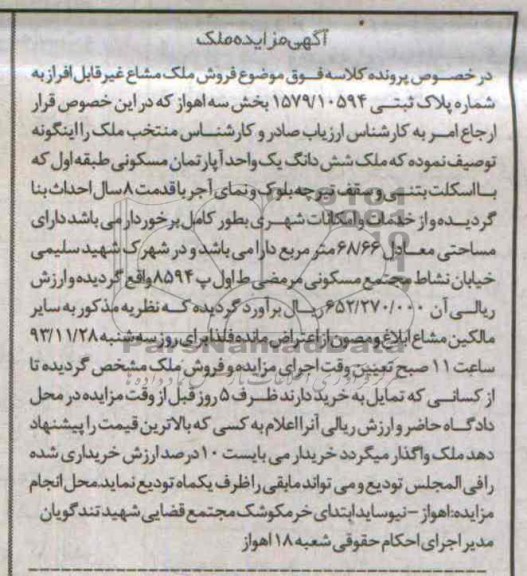 آگهی مزایده ملک
در خصوص پرونده کلاسه فوق موضوع فروش ملک مشاع غیر قابل افراز به
شماره پلاک ثبتی ۱۵۷۹/۱۰۵۹۴ بخش سه اهواز که در این خصوص قرار
ارجاع امر به کارشناس ارزیاب صادر و کارشناس منتخب ملک را اینگونه
توصیف نموده که ملک شش دانگ یک واحد آپارتمان مسکونی طبقه اول که
با اسکلت بتنی و سقف تیرچه بلوک و نمای آجر با قدمت ۸ سال احداث بنا
گردیده و از خدمات و امکانات شهری بطور کامل برخوردار می باشد دارای
مساحتی معادل ۶۸/۶۶ متر مربع دارا می باشد و در شهرک شهید سلیمی
خیابان نشاط مجتمع مسکونی مرمضی ط اول پ ۸۵۹۴ واقع گردیده و ارزش
ریالی آن ۶۵۲/۲۷۰/۰۰۰ ریال برآورد گردیده که نظریه مذکور به سایر
مالکین مشاع ابلاغ و مصون از اعتراض مانده فلذا برای روز سه شنبه ۹۳/۱۱/۲۸
ساعت ۱۱ صبح تعیین وقت اجرای مزایده و فروش ملک مشخص گردیده تا
از کسانی که تمایل به خرید دارند ظرف ۵ روز قبل از وقت مزایده در محل
دادگاه حاضر و ارزش ریالی آنرا اعلام به کسی که بالاترین قیمت را پیشنهاد
دهد ملک واگذار میگردد خریدار می بایست ۱۰ درصد ارزش خریداری شده
را فی المجلس تودیع و می تواند مابقی را ظرف یکماه تودیع نماید. محل انجام
مزایده: اهواز – نیوساید ابتدای خرمکوشک مجتمع قضایی شهید تندگویان
مدیر اجرای احکام حقوقی شعبه ۱۸ اهواز
ParsNamadData